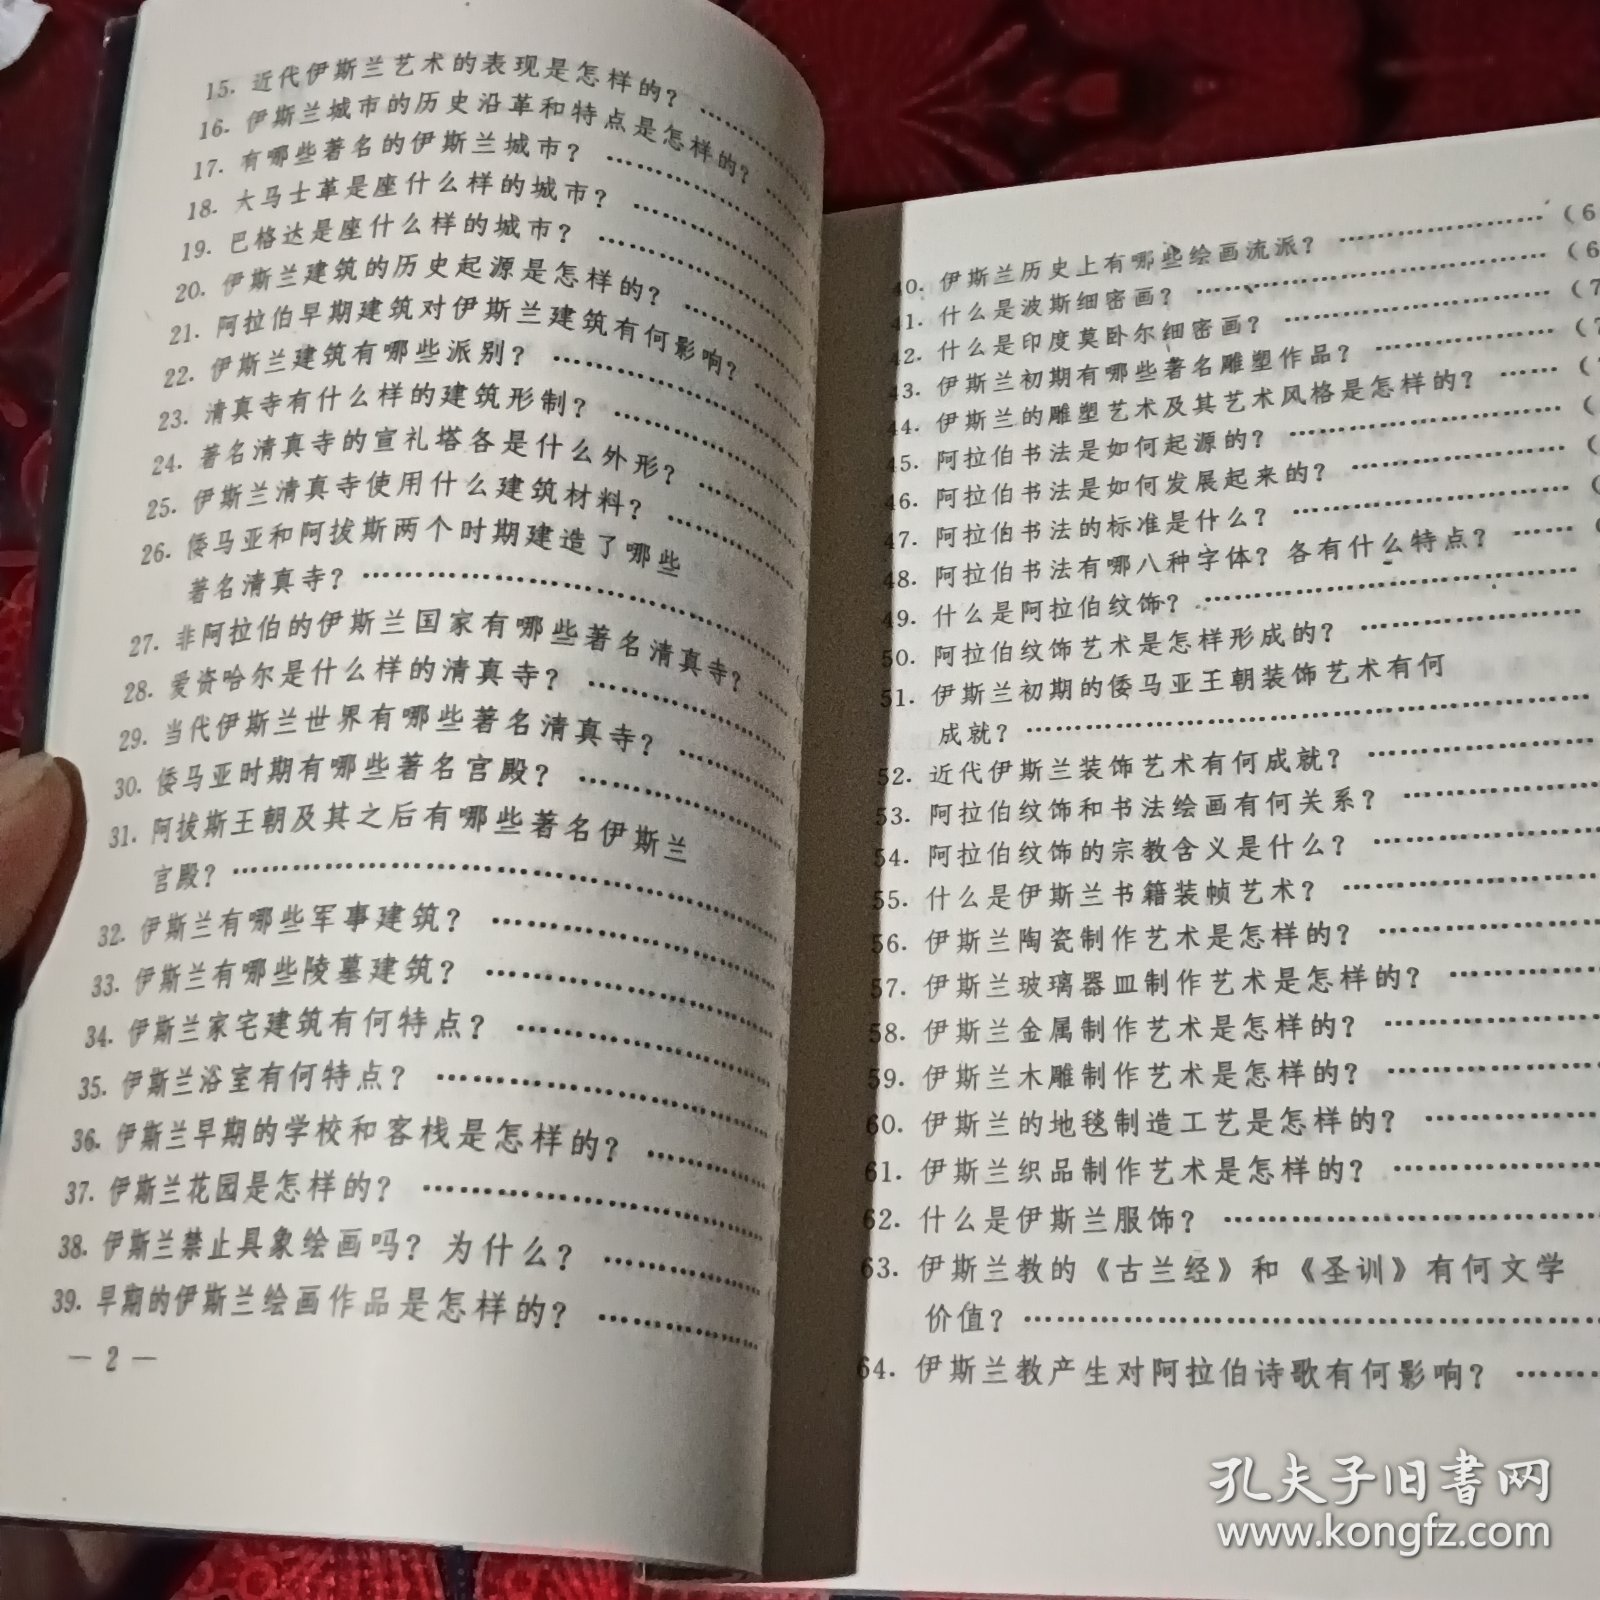 15. 近代伊斯兰艺术的表现是怎样的？
16. 伊斯兰城市的历史沿革和特点是怎样的？
17. 有哪些著名的伊斯兰城市？
18. 大马士革是座什么样的城市？
19. 巴格达是座什么样的城市？
20. 伊斯兰建筑的历史起源是怎样的？
21. 阿拉伯早期建筑对伊斯兰建筑有何影响？
22. 伊斯兰建筑有哪些派别？
23. 清真寺有什么样的建筑形制？
24. 著名清真寺的宣礼塔各是什么外形？
25. 伊斯兰清真寺使用什么建筑材料？
26. 倭马亚和阿拔斯两个时期建造了哪些
著名清真寺？
27. 非阿拉伯的伊斯兰国家有哪些著名清真寺？
28. 爱资哈尔是什么样的清真寺？
29. 当代伊斯兰世界有哪些著名清真寺？
30. 倭马亚时期有哪些著名宫殿？
31. 阿拔斯王朝及其之后有哪些著名伊斯兰
宫殿？
32. 伊斯兰有哪些军事建筑？
33. 伊斯兰有哪些陵墓建筑？
34. 伊斯兰家宅建筑有何特点？
35. 伊斯兰浴室有何特点？
36. 伊斯兰早期的学校和客栈是怎样的？
37. 伊斯兰花园是怎样的？
38. 伊斯兰禁止具象绘画吗？为什么？
39. 早期的伊斯兰绘画作品是怎样的？
— 2 —
40. 伊斯兰历史上有哪些绘画流派？ (6
41. 什么是波斯细密画？ (6
42. 什么是印度莫卧尔细密画？ (7
43. 伊斯兰初期有哪些著名雕塑作品？ (7
44. 伊斯兰的雕塑艺术及其艺术风格是怎样的？
45. 阿拉伯书法是如何起源的？
46. 阿拉伯书法是如何发展起来的？
47. 阿拉伯书法的标准是什么？
48. 阿拉伯书法有哪八种字体？各有什么特点？
49. 什么是阿拉伯纹饰？
50. 阿拉伯纹饰艺术是怎样形成的？
51. 伊斯兰初期的倭马亚王朝装饰艺术有何
成就？
52. 近代伊斯兰装饰艺术有何成就？
53. 阿拉伯纹饰和书法绘画有何关系？
54. 阿拉伯纹饰的宗教含义是什么？
55. 什么是伊斯兰书籍装帧艺术？
56. 伊斯兰陶瓷制作艺术是怎样的？
57. 伊斯兰玻璃器皿制作艺术是怎样的？
58. 伊斯兰金属制作艺术是怎样的？
59. 伊斯兰木雕制作艺术是怎样的？
60. 伊斯兰的地毯制造工艺是怎样的？
61. 伊斯兰织品制作艺术是怎样的？
62. 什么是伊斯兰服饰？
63. 伊斯兰教的《古兰经》和《圣训》有何文学
价值？
64. 伊斯兰教产生对阿拉伯诗歌有何影响？
孔夫子旧书网
www.kongfz.com